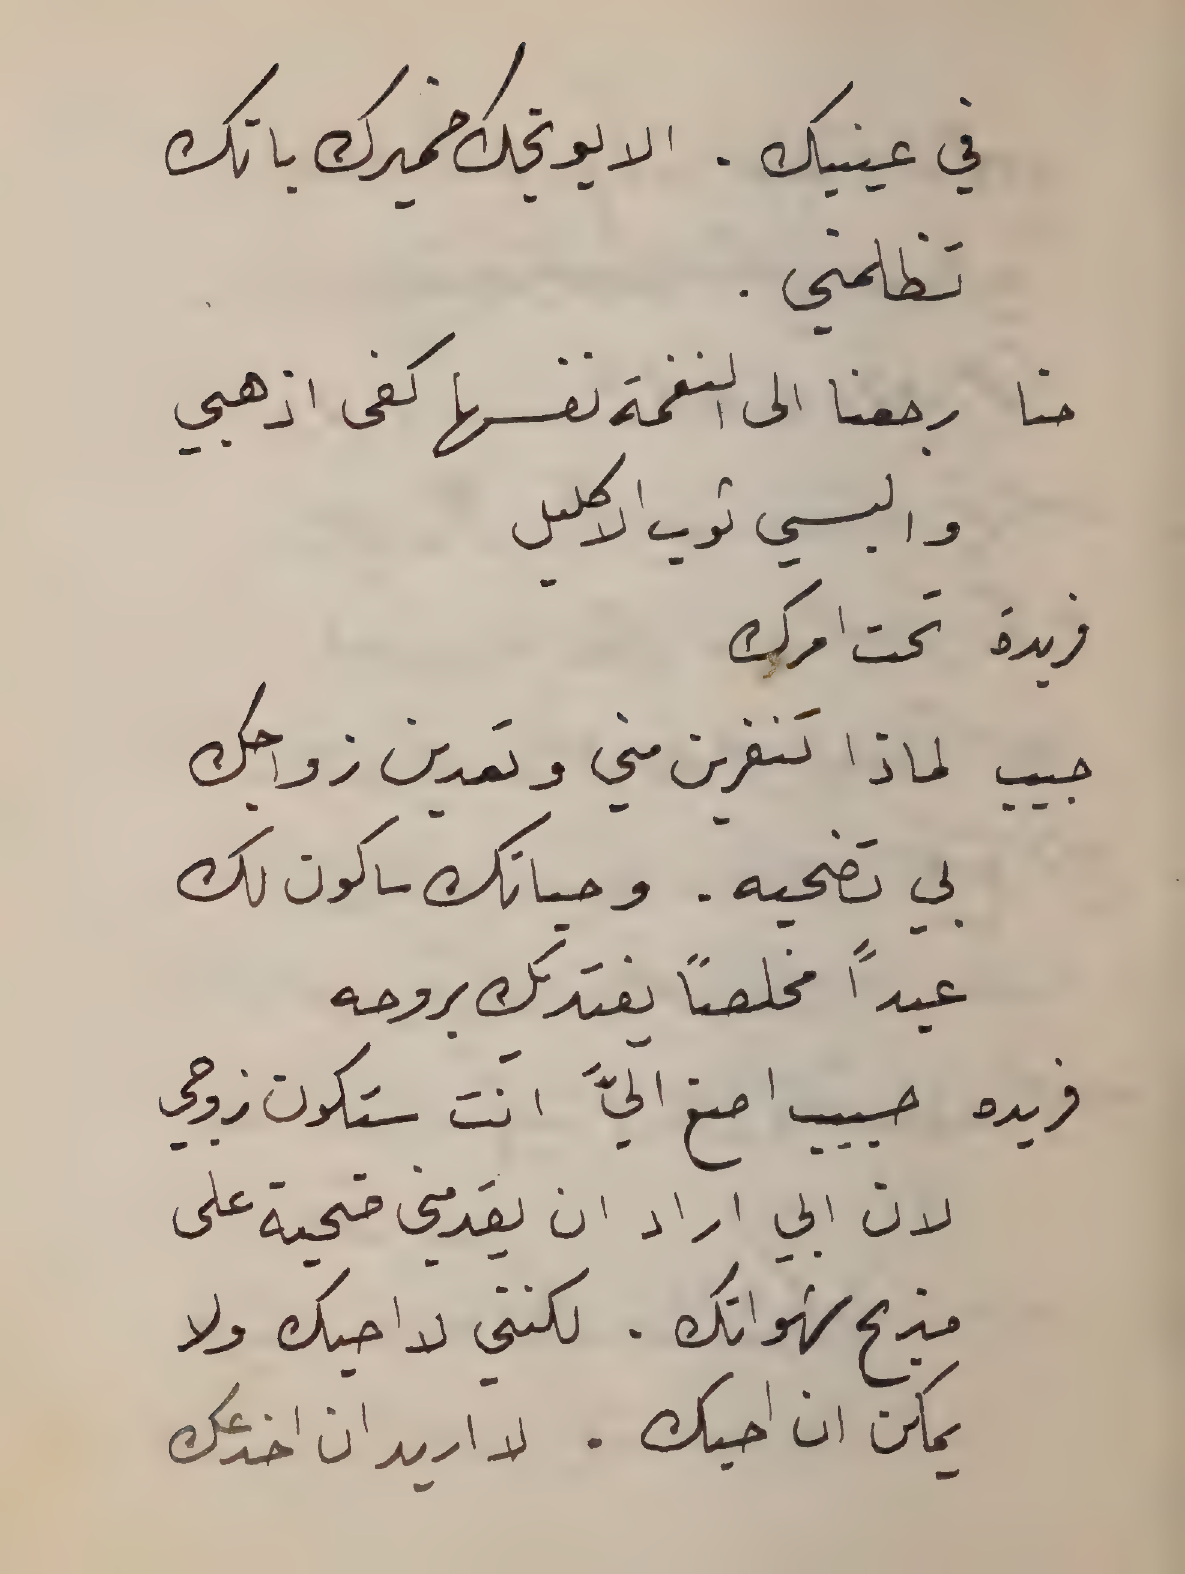 في عينيك . الا يوبخك ضميرك بانك
تظالمني .
حنا رجعنا الى النغمة نفسها كفى اذهبي
والبسي ثوب الاكليل
فريدة تحت امرك
حبيب لماذا تنفرين مني وتعدين زواجك
بي تضحيه . وحياتك ساكون لك
عبداً مخلصاً يفتديك بروحه
فريده حبيب اصغ اليَّ انت ستكون زوجي
لان ابي اراد ان يقدمني ضحية على
مذبح شهواتك . لكنني لا احبك ولا
يمكن ان احبك . لا اريد ان اخدعك